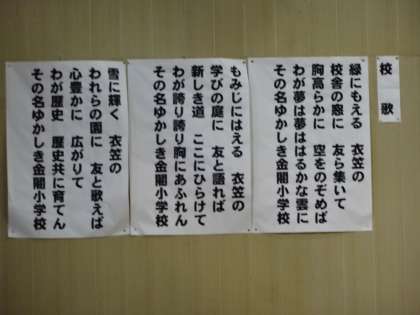 校歌
緑にもえる 衣笠の
校舎の窓に 友ら集いて
胸高らかに 空をのぞめば
わが夢は夢ははるかな雲に
その名ゆかしき金閣小学校
もみじにはえる 衣笠の
学びの庭に 友と語れば
新しき道 ここにひらけて
わが誇り誇り胸にあふれん
その名ゆかしき金閣小学校
雪に輝く 衣笠の
われらの園に 友と歌えば
心豊かに 広がりて
わが歴史 歴史共に育てん
その名ゆかしき金閣小学校